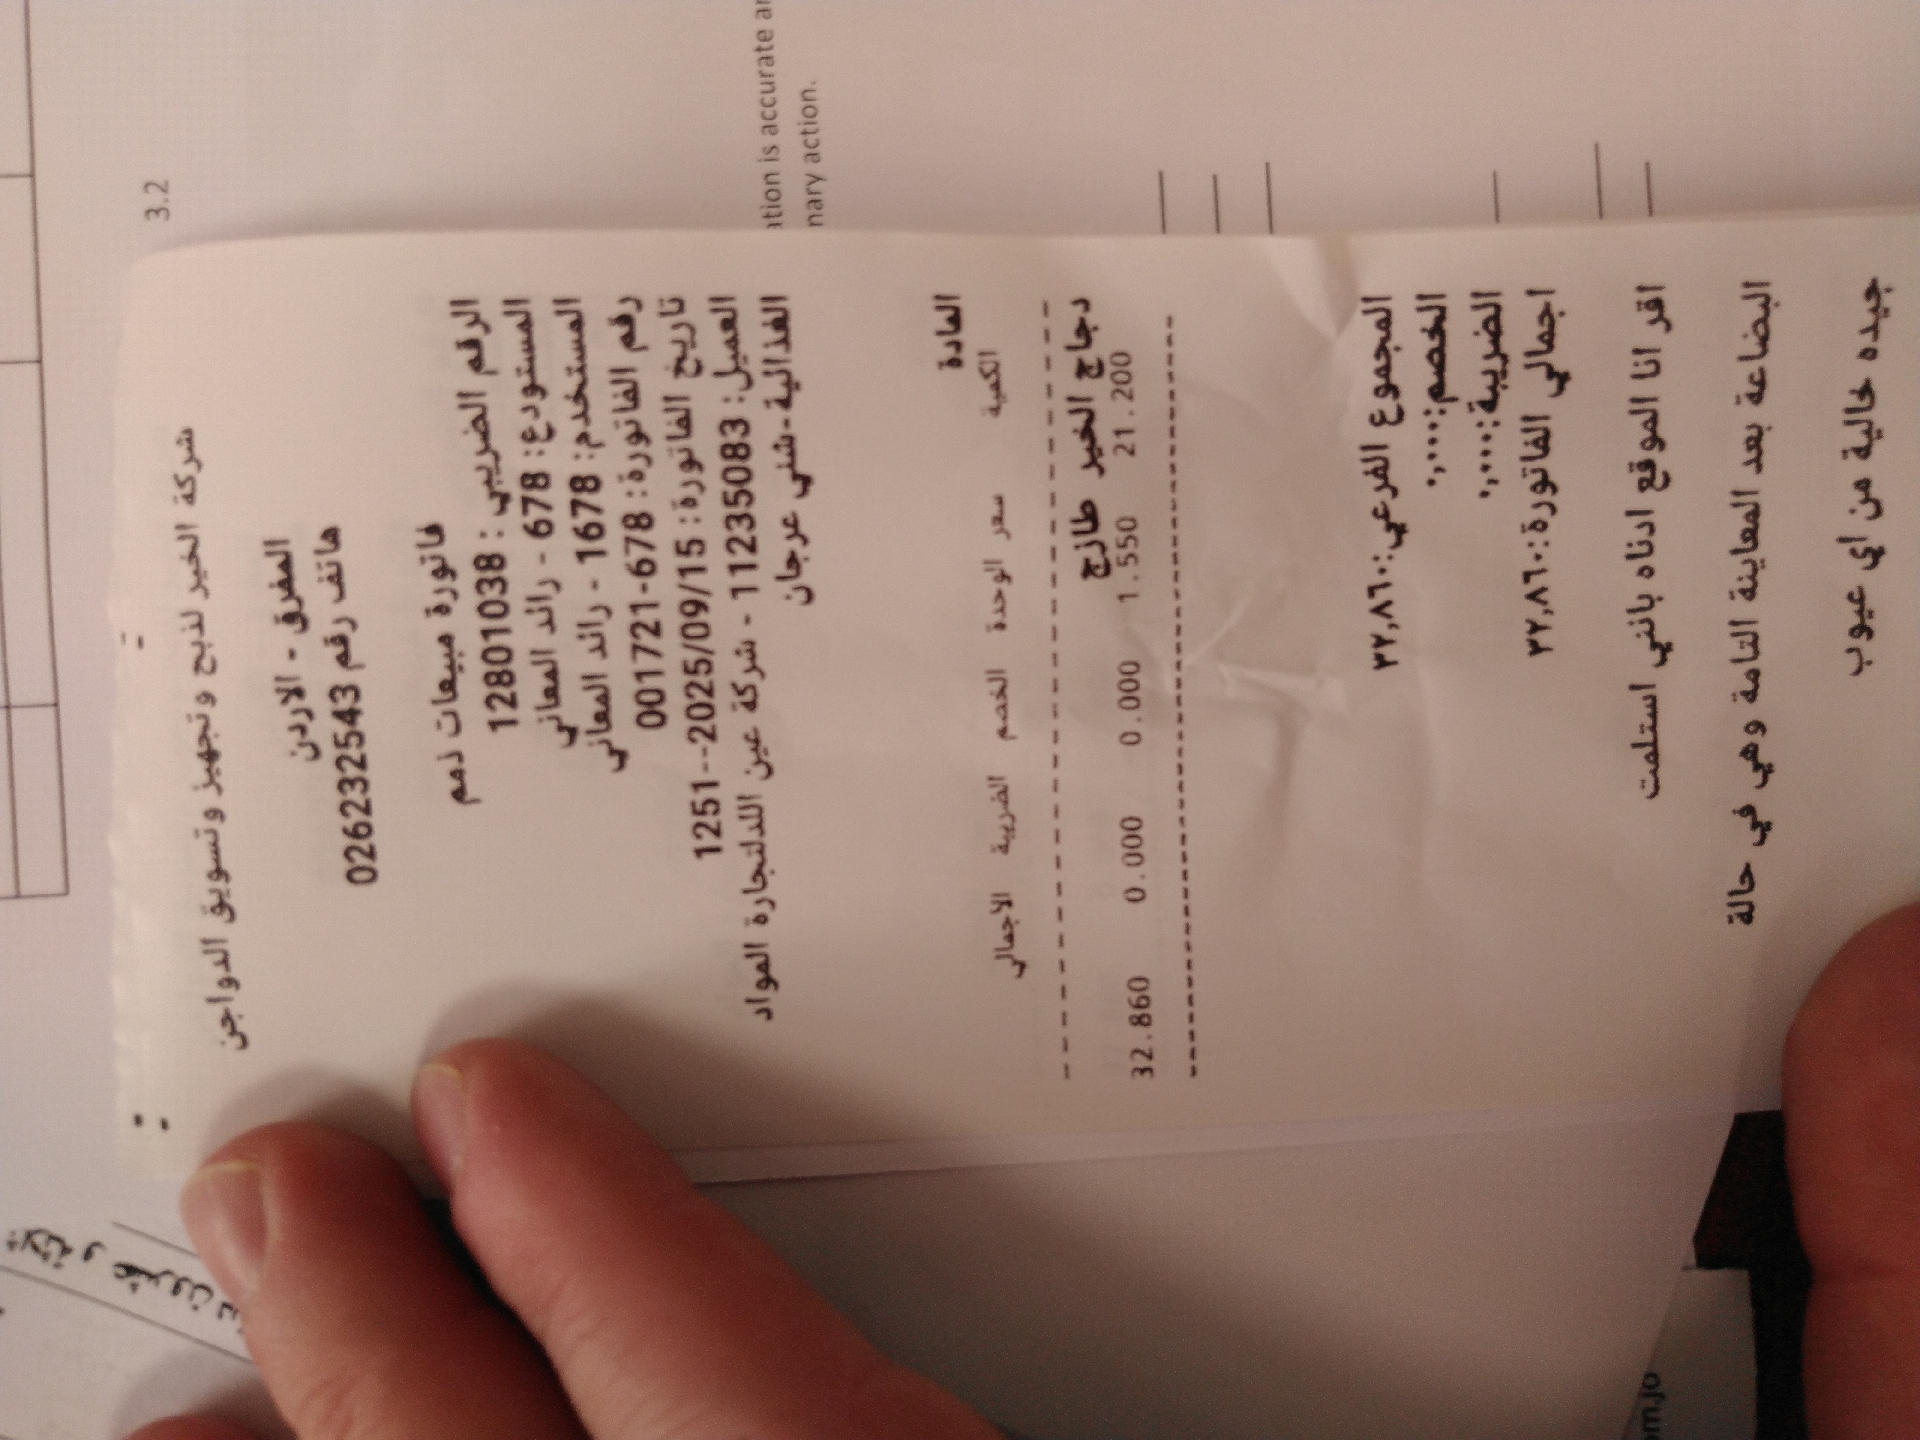 شركة الخير لذبح وتجهيز وتسويق الدواجن
المفرق - الاردن
هاتف رقم 0262325543
فاتورة مبيعات ذمم
الرقم الضريبي : 12801038
المستودع: 678 - رائد المعاني
المستخدم: 1678 - رائد المعاني
رقم الفاتورة: 678-001721
تاريخ الفاتورة: 2025/09/15--1251
العميل: 11235083 - شركة عين اللدلتجارة المواد
الغذائية-شئي عرجان
المادة
الكمية سعر الوحدة الخصم الضريبة الاجمالي
دجاج الخير طازج
21.200 1.550 0.000 0.000 32.860
المجموع الفرعي:٣٢,٨٦٠
الخصم:٠,٠٠٠
الضريبة:٠,٠٠٠
اجمالي الفاتورة:٣٢,٨٦٠
اقر انا الموقع ادناه بانني استلمت
البضاعة بعد المعاينة التامة وهي في حالة
جيده خالية من اي عيوب
3.2
ation is accurate
nary action.
om.jo